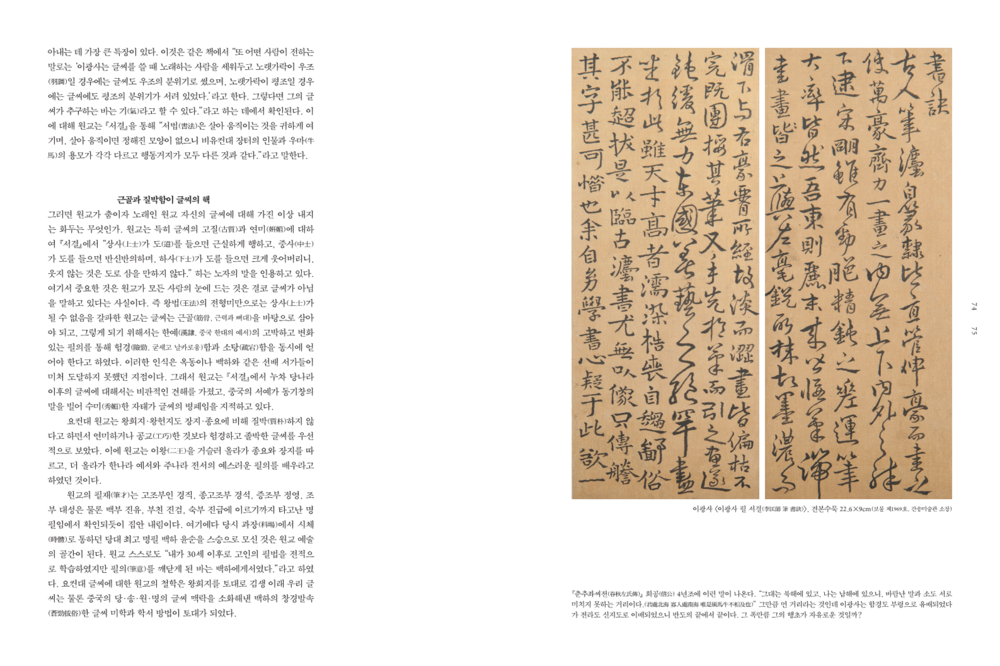 아내는 데 가장 큰 특장이 있다. 이것은 같은 책에서 “또 어떤 사람이 전하는
말로는 ‘이광사는 글씨를 쓸 때 노래하는 사람을 세워두고 노랫가락이 우조
(羽調)일 경우에는 글씨도 우조의 분위기로 썼으며, 노랫가락이 평조일 경우
에는 글씨에도 평조의 분위기가 서려 있었다.’라고 한다. 그렇다면 그의 글
씨가 추구하는 바는 기(氣)라고 할 수 있다.”라고 하는 데에서 확인된다. 이
에 대해 원교는 『서결』을 통해 “서법(書法)은 살아 움직이는 것을 귀하게 여
기며, 살아 움직이면 정해진 모양이 없으니 비유컨대 장터의 인물과 우마(牛
馬)의 용모가 각각 다르고 행동거지가 모두 다른 것과 같다.”라고 말한다.
근골과 질박함이 글씨의 핵
그러면 원교가 춤이자 노래인 원교 자신의 글씨에 대해 가진 이상 내지
는 화두는 무엇인가. 원교는 특히 글씨의 고질(古質)과 연미(姸媚)에 대하
여 『서결』에서 “상사(上士)가 도(道)를 들으면 근실하게 행하고, 중사(中士)
가 도를 들으면 반신반의하며, 하사(下士)가 도를 들으면 크게 웃어버리니,
웃지 않는 것은 도로 삼을 만하지 않다.” 하는 노자의 말을 인용하고 있다.
여기서 중요한 것은 원교가 모든 사람의 눈에 드는 것은 결코 글씨가 아님
을 말하고 있다는 사실이다. 즉 왕법(王法)의 전형미만으로는 상사(上士)가
될 수 없음을 갈파한 원교는 글씨는 근골(筋骨, 근력과 뼈대)을 바탕으로 삼아
야 되고, 그렇게 되기 위해서는 한예(漢隷, 중국 한대의 예서)의 고박하고 변화
있는 필의를 통해 험경(險勁, 굳세고 날카로움)함과 소탕(疏宕)함을 동시에 얻
어야 한다고 하였다. 이러한 인식은 옥동이나 백하와 같은 선배 서가들이
미처 도달하지 못했던 지점이다. 그래서 원교는 『서결』에서 누차 당나라
이후의 글씨에 대해서는 비판적인 견해를 가졌고, 중국의 서예가 동기창의
말을 빌어 수미(秀媚)한 자태가 글씨의 병폐임을 지적하고 있다.
요컨대 원교는 왕희지·왕헌지도 장지·종요에 비해 질박(質朴)하지 않
다고 하면서 연미하거나 공교(工巧)한 것보다 험경하고 졸박한 글씨를 우선
적으로 보았다. 이에 원교는 이왕(二王)을 거슬러 올라가 종요와 장지를 따
르고, 더 올라가 한나라 예서와 주나라 전서의 예스러운 필의를 배우라고
하였던 것이다.
원교의 필재(筆才)는 고조부인 경직, 종고조부 경석, 증조부 정영, 조
부 대성은 물론 백부 진유, 부친 진검, 숙부 진급에 이르기까지 타고난 명
필임에서 확인되듯이 집안 내림이다. 여기에다 당시 과장(科場)에서 시체
(時體)로 통하던 당대 최고 명필 백하 윤순을 스승으로 모신 것은 원교 예술
의 골간이 된다. 원교 스스로도 “내가 30세 이후로 고인의 필법을 전적으
로 학습하였지만 필의(筆意)를 깨닫게 된 바는 백하에게서였다.”라고 하였
다. 요컨대 글씨에 대한 원교의 철학은 왕희지를 토대로 김생 이래 우리 글
씨는 물론 중국의 당·송·원·명의 글씨 맥락을 소화해낸 백하의 창경발속
(蒼勁拔俗)한 글씨 미학과 학서 방법이 토대가 되었다.
書訣
古人筆灋自篆隸皆直管伸豪而書之
使萬豪齊力一畫之內無上下內外之殊
下逮宋明雖有勁脆精鈍之差運筆
大率皆然吾東則麗末來皆偃筆端
書畫皆之上與左毫銳所抹故墨濃而
滑下與右豪腰所經故淡而澀畫皆偏枯不
完旣團
鈍緩無力東國
坐於此雖天才高者濡染梏喪自趨鄙俗
不能超拔是以臨古灋書尤無以倣只傳謄
其字甚可惜也余自勿學書心疑于此欲一
이광사 〈이광사 필 서결(李匡師 筆 書訣)〉, 견본수묵 22.6×9cm(보물 제1969호, 간송미술관 소장)
74
75
『춘추좌씨전(春秋左氏傳)』 희공(僖公) 4년조에 이런 말이 나온다. “그대는 북해에 있고, 나는 남해에 있으니, 바람난 말과 소도 서로
미치지 못하는 거리이다.(君處北海 寡人處南海 唯是風馬牛不相及也)” 그만큼 먼 거리라는 것인데 이광사는 함경도 부령으로 유배되었다
가 전라도 신지도로 이배되었으니 반도의 끝에서 끝이다. 그 폭만큼 그의 행초가 자유로운 것일까?